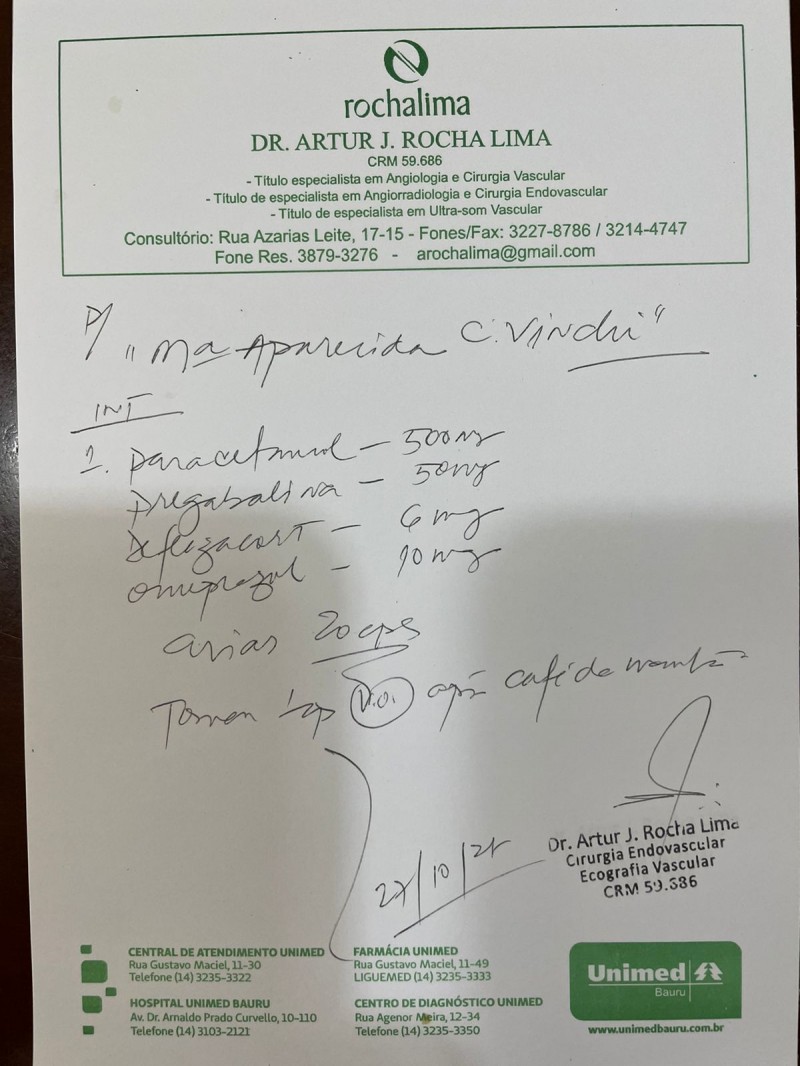 rochalima
DR. ARTUR J. ROCHA LIMA
CRM 59.686
- Título especialista em Angiologia e Cirurgia Vascular
- Título de especialista em Angiorradiologia e Cirurgia Endovascular
- Título de especialista em Ultra-som Vascular
Consultório: Rua Azarias Leite, 17-15 - Fones/Fax: 3227-8786 / 3214-4747
Fone Res. 3879-3276 - arochalima@gmail.com
P/ "Mª Aparecida C.
INT
1. Paracetamol - 500mg
Pregabalina - 50mg
Deflazacort - 6mg
Omeprazol - 10mg
20 cps
Tomar 1cp V.O. após café da manhã
27/10/21
Dr. Artur J. Rocha Lima
Cirurgia Endovascular
Ecografia Vascular
CRM 59.686
CENTRAL DE ATENDIMENTO UNIMED
Rua Gustavo Maciel, 11-30
Telefone (14) 3235-3322
HOSPITAL UNIMED BAURU
Av. Dr. Arnaldo Prado Curvello, 10-110
Telefone (14) 3103-2121
FARMÁCIA UNIMED
Rua Gustavo Maciel, 11-49
LIGUEMED (14) 3235-3333
CENTRO DE DIAGNÓSTICO UNIMED
Rua Agenor Meira, 12-34
Telefone (14) 3235-3350
Unimed
Bauru
www.unimedbauru.com.br